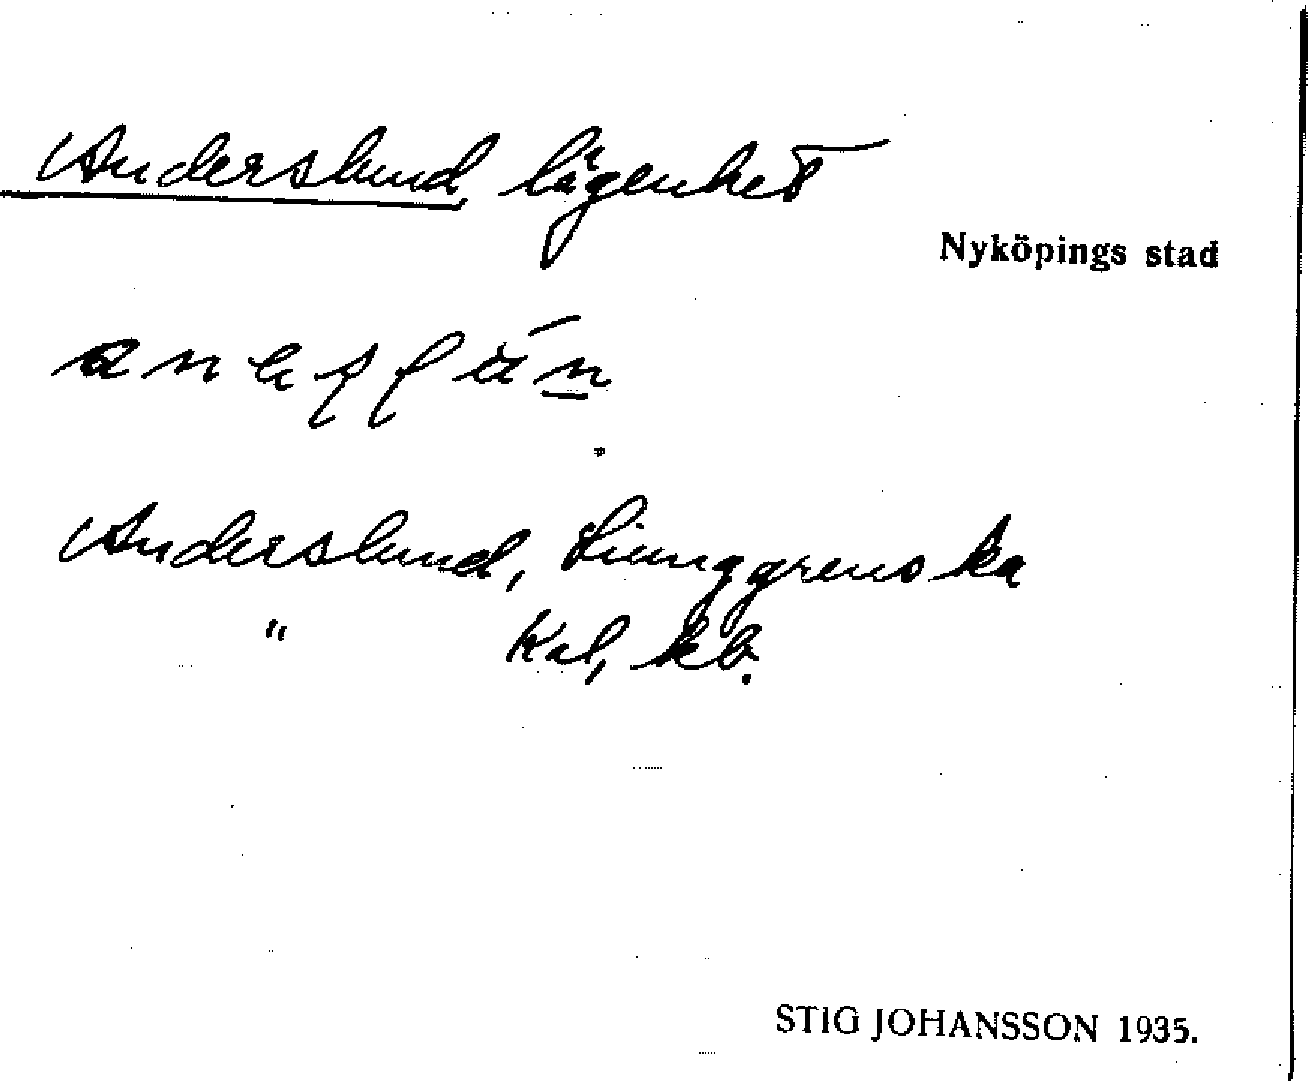 Anderslund lägenhet
Nyköpings stad
Anderslund, Liunggrenska
" Kal, kb.
STIG JOHANSSON 1935.